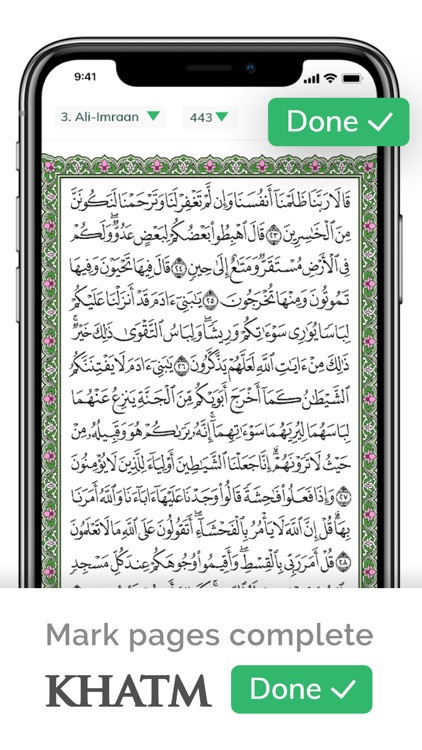 9:41
3. Ali-Imraan
443
Done
قَالَا رَبَّنَا ظَلَمْنَآ أَنفُسَنَا وَإِن لَّمْ تَغْفِرْ لَنَا وَتَرْحَمْنَا لَنَكُونَنَّ
مِنَ ٱلْخَٰسِرِينَ ٢٣ قَالَ ٱهْبِطُوا۟ بَعْضُكُمْ لِبَعْضٍ عَدُوٌّ ۖ وَلَكُمْ
فِى ٱلْأَرْضِ مُسْتَقَرٌّ وَمَتَٰعٌ إِلَىٰ حِينٍ ٢٤ قَالَ فِيهَا تَحْيَوْنَ وَفِيهَا
تَمُوتُونَ وَمِنْهَا تُخْرَجُونَ ٢٥ يَٰبَنِىٓ ءَادَمَ قَدْ أَنزَلْنَا عَلَيْكُمْ
لِبَاسًا يُوَٰرِى سَوْءَٰتِكُمْ وَرِيشًا ۖ وَلِبَاسُ ٱلتَّقْوَىٰ ذَٰلِكَ خَيْرٌ ۚ
ذَٰلِكَ مِنْ ءَايَٰتِ ٱللَّهِ لَعَلَّهُمْ يَذَّكَّرُونَ ٢٦ يَٰبَنِىٓ ءَادَمَ لَا يَفْتِنَنَّكُمُ
ٱلشَّيْطَٰنُ كَمَآ أَخْرَجَ أَبَوَيْكُم مِّنَ ٱلْجَنَّةِ يَنزِعُ عَنْهُمَا
لِبَاسَهُمَا لِيُرِيَهُمَا سَوْءَٰتِهِمَآ ۗ إِنَّهُۥ يَرَىٰكُمْ هُوَ وَقَبِيلُهُۥ مِنْ
حَيْثُ لَا تَرَوْنَهُمْ ۗ إِنَّا جَعَلْنَا ٱلشَّيَٰطِينَ أَوْلِيَآءَ لِلَّذِينَ لَا يُؤْمِنُونَ
٢٧ وَإِذَا فَعَلُوا۟ فَٰحِشَةً قَالُوا۟ وَجَدْنَا عَلَيْهَآ ءَابَآءَنَا وَٱللَّهُ أَمَرَنَا
بِهَا ۗ قُلْ إِنَّ ٱللَّهَ لَا يَأْمُرُ بِٱلْفَحْشَآءِ ۖ أَتَقُولُونَ عَلَى ٱللَّهِ مَا لَا تَعْلَمُونَ
٢٨ قُلْ أَمَرَ رَبِّى بِٱلْقِسْطِ ۖ وَأَقِيمُوا۟ وُجُوهَكُمْ عِندَ كُلِّ مَسْجِدٍ
Mark pages complete
KHATM
Done